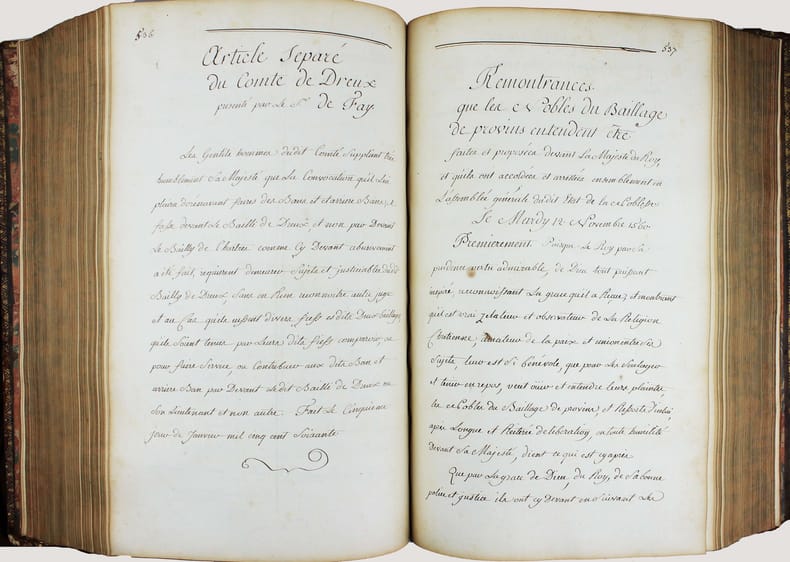 536
Article Separé
du Comté de Dreux
presenté par Le Sr. de Fay.
Les Gentils hommes dudit Comté Supplient très
humblement Sa Majesté que La Convocation qu'il Lui
plaira dorénavant faire des Bans et arriere Bans, se
fasse devant Le Bailli de Dreux, et non par Devant
Le Bailly de Chartres comme Cy Devant abusivement
a été fait, requierent demeurer Sujets et justiciables dudit
Bailly de Dreux Sans en Rien reconnoitre autre juge
et au Cas qu'ils ayent divers fiefs es dits Deux Bailliages
qu'ils Soient tenus par Leurs dits fiefs comparoir, ou
pour faire Service, ou Contribuer aux dits Ban et
arriere Ban par Devant Ledit Bailli de Dreux ou
Son Lieutenant et non autre. Fait Le Cinquieme
jour de Janvier mil cinq cent Soixante
537
Remontrances
que les Nobles du Baillage
de provins entendent être
faites et proposées devant La Majesté du Roy,
et qu'ils ont accordées et arrêtées ensemblement en
L'assemblée générale dudit Etat de la Noblesse
Le Mardy 12 Novembre 1560
Premierement Puisque Le Roy par Sa
prudence vertu admirable, de Dieu tout puissant
inspiré, reconnoissant La grace qu'il a Reçue, et montrant
qu'il est vrai zelateur et observateur de La Religion
Chrêtienne, amateur de la paix et union entre Ses
Sujets, leur est Si bénévole, que pour Les Soulager
et tenir en repos, veut ouir et entendre leurs plaintes,
les Nobles du Baillage de provins, et Reports d'icelui,
après Longue et Reiterée deliberation, en toute humilité
devant Sa Majesté, disent ce qui est cy après
Que par La grace de Dieu, du Roy, de Sa bonne
police et justice ils ont cy Devant en Suivant Les